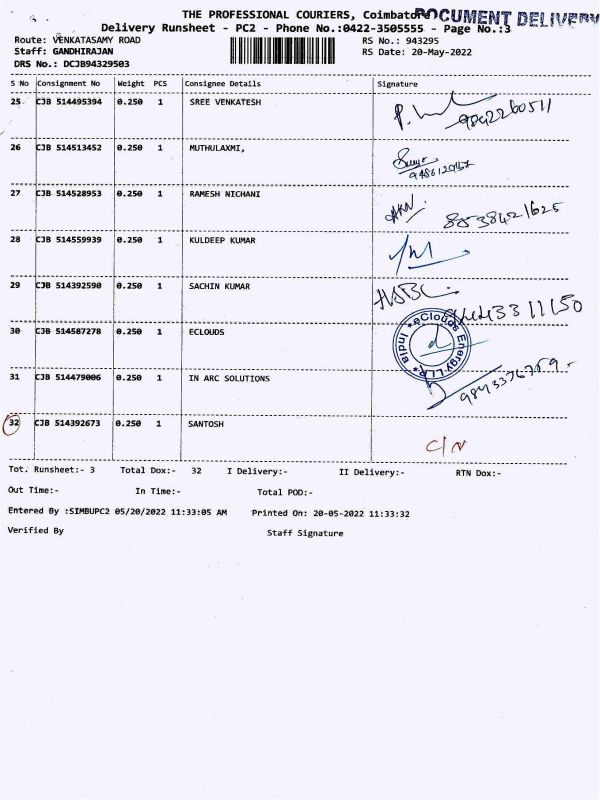 THE PROFESSIONAL COURIERS, Coimbatore
DOCUMENT DELIVERY
Delivery Runsheet - PC2 - Phone No.:0422-3505555 - Page No.:3
Route: VENKATASAMY ROAD
RS No.: 943295
Staff: GANDHIRAJAN
RS Date: 20-May-2022
DRS No.: DCJB94329503
S No Consignment No Weight PCS Consignee Details Signature
25 CJB 514495394 0.250 1 SREE VENKATESH
9842260511
26 CJB 514513452 0.250 1 MUTHULAXMI,
27 CJB 514528953 0.250 1 RAMESH NICHANI
8538421625
28 CJB 514559939 0.250 1 KULDEEP KUMAR
29 CJB 514392590 0.250 1 SACHIN KUMAR
HSBC
30 CJB 514587278 0.250 1 ECLOUDS
eClouds Energy LLP * India *
31 CJB 514479006 0.250 1 IN ARC SOLUTIONS
32 CJB 514392673 0.250 1 SANTOSH
C/N
Tot. Runsheet:- 3 Total Dox:- 32 I Delivery:- II Delivery:- RTN Dox:-
Out Time:- In Time:- Total POD:-
Entered By :SIMBUPC2 05/20/2022 11:33:05 AM Printed On: 20-05-2022 11:33:32
Verified By Staff Signature